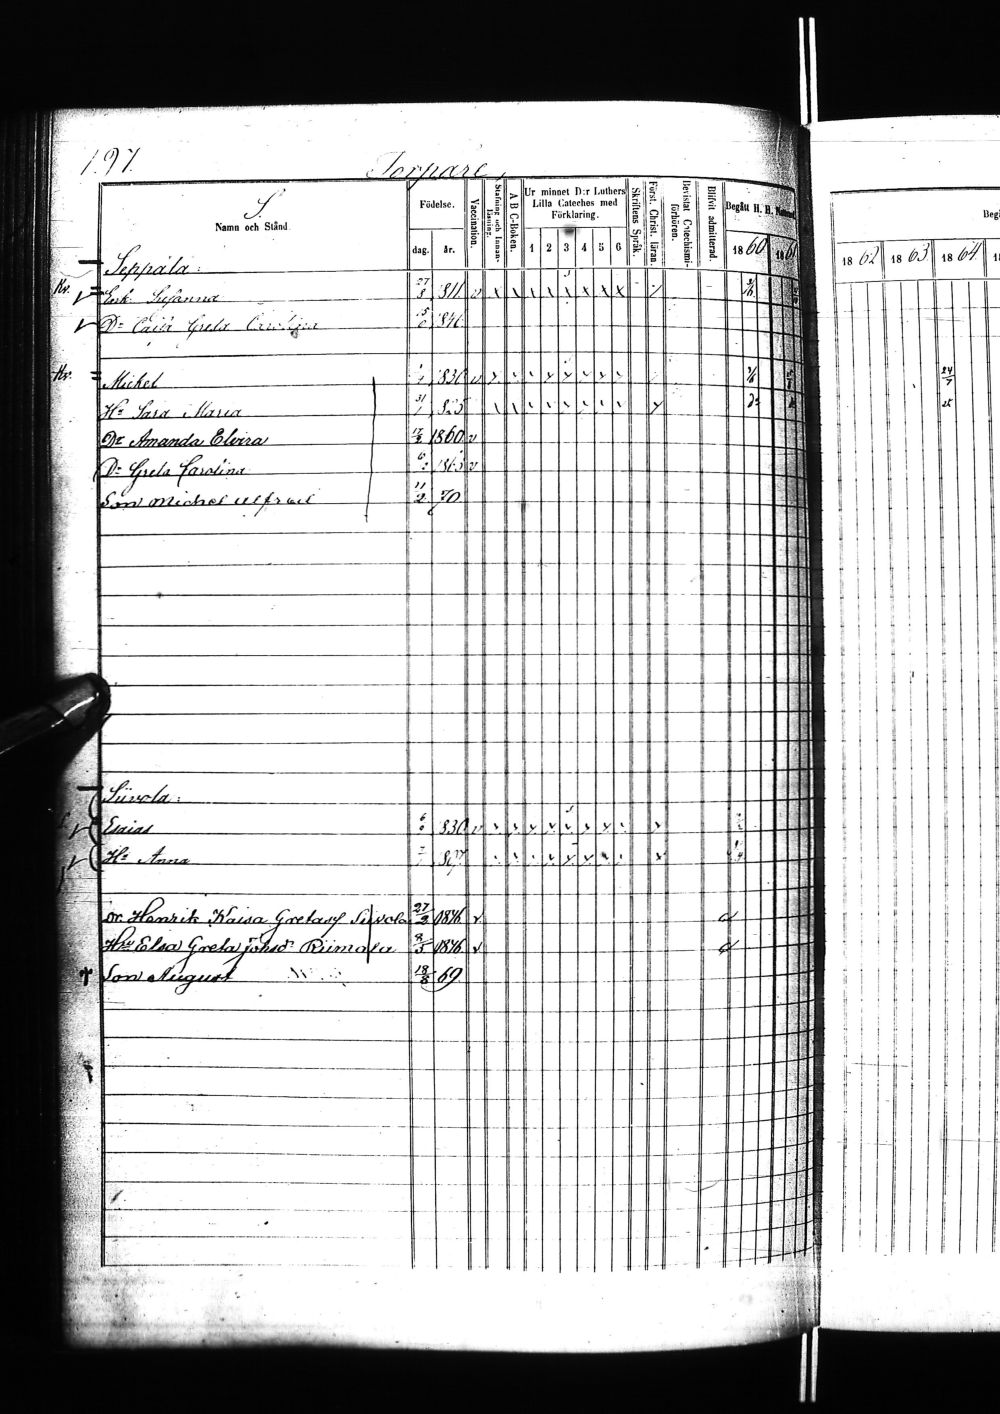 197
Torpare
S.
Namn och Stånd.
Födelse.
dag. år.
Vaccination.
Stafning och Innan-läsning.
A B C-Boken.
Ur minnet D:r Luthers Lilla Cateches med Förklaring.
1 2 3 4 5 6
Skriftens Språk.
Först. Christ. läran.
Bevistat Catechismi-förhören.
Blifvit admitterad.
Begått H. H. Nattvard
1860 1861
1862 1863 1864
Seppälä:
Kv. Enk. Susanna 27/8 811 v
Dr Caisa Greta Carolina 846
Kv. Michel 830 v 24/7
Hu Sara Maria 31/1 825
Dr Amanda Elvira 17/3 1860 v
Dr Greta Carolina v
Son Michel Alfred 11/2 70
Siivola:
Esaias 830 v
Hu Anna 807
Dr. Henrik Kaisa Gretasf Siivola 27/2 1846
Hu Elsa Greta Johsdr Riimala 8/5 1846
† Son August 18/8 69